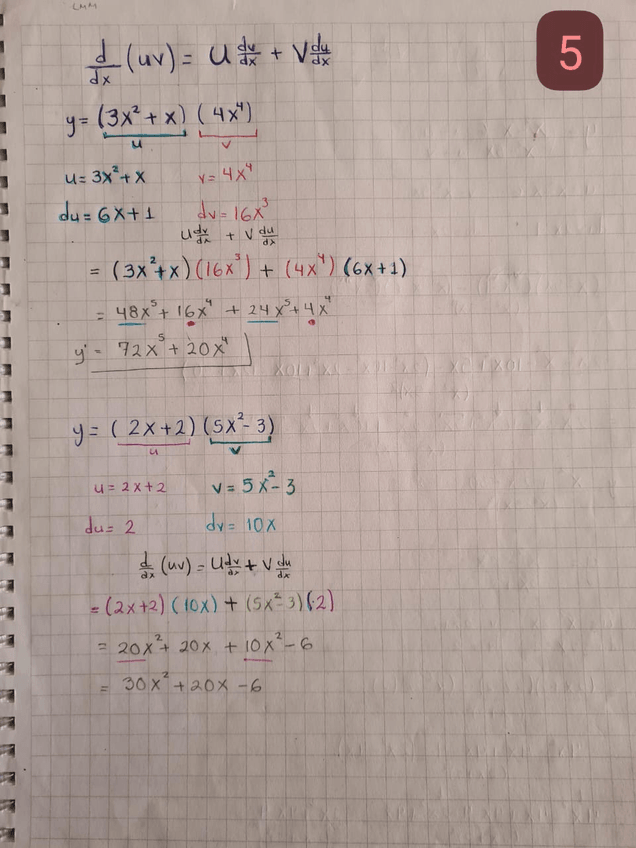 LMM
5
d/dx (uv) = u dv/dx + v du/dx
y = (3x² + x) (4x⁴)
u v
u = 3x² + x v = 4x⁴
du = 6x + 1 dv = 16x³
u dv/dx + v du/dx
= (3x² + x) (16x³) + (4x⁴) (6x + 1)
= 48x⁵ + 16x⁴ + 24x⁵ + 4x⁴
y' = 72x⁵ + 20x⁴
y = (2x + 2) (5x² - 3)
u v
u = 2x + 2 v = 5x² - 3
du = 2 dv = 10x
d/dx (uv) = u dv/dx + v du/dx
= (2x + 2) (10x) + (5x² - 3) (2)
= 20x² + 20x + 10x² - 6
= 30x² + 20x - 6